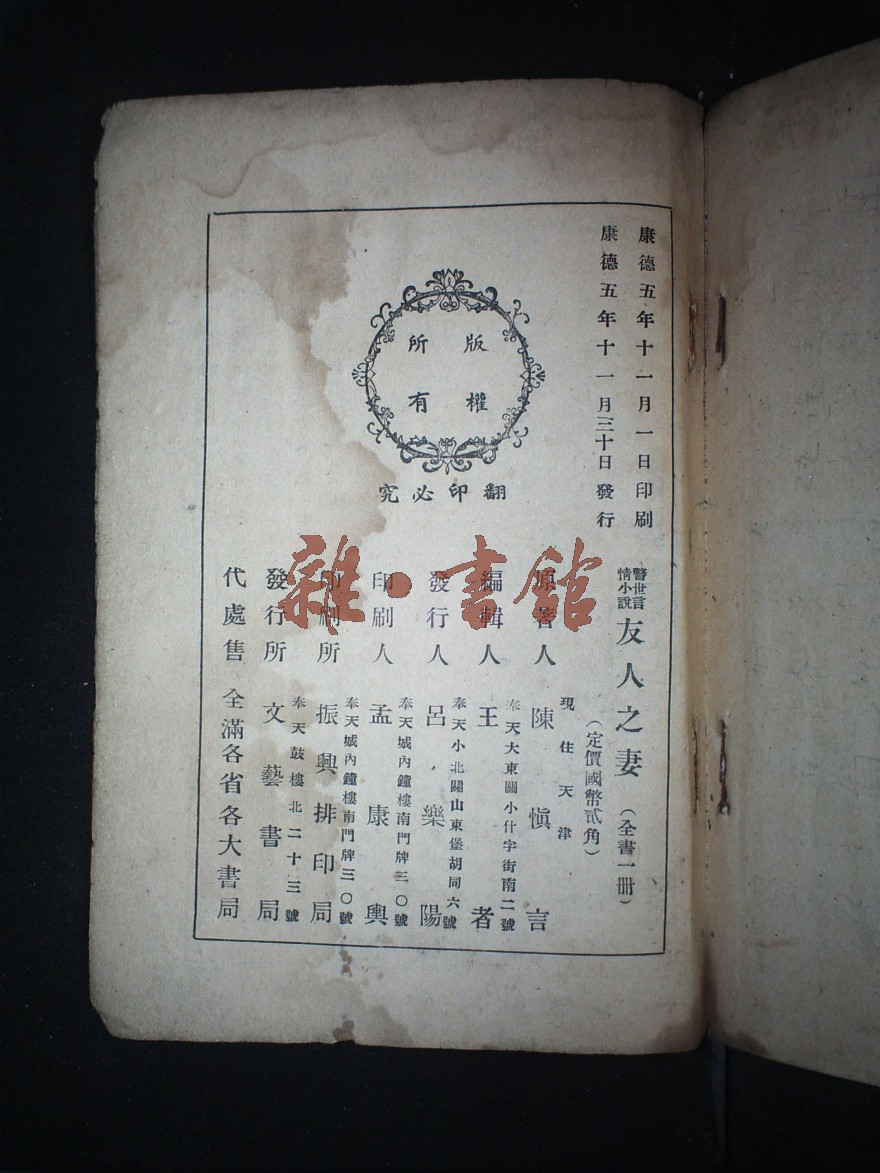 康德五年十一月一日印刷
康德五年十一月三十日發行
版權
所有
翻印必究
警世言
情小說
友人之妻
（全書一冊）
（定價國幣貳角）
現住天津
原著人 陳愼言
奉天大東關小什字街南二號
編輯人 王者
奉天小北關山東堡胡同六號
發行人 呂樂陽
奉天城內鐘樓南門牌三〇號
印刷人 孟康輿
奉天城內鐘樓南門牌三〇號
印刷所 振興排印局
奉天鼓樓北二十三號
發行所 文藝書局
代處售 全滿各省各大書局
雜·書館